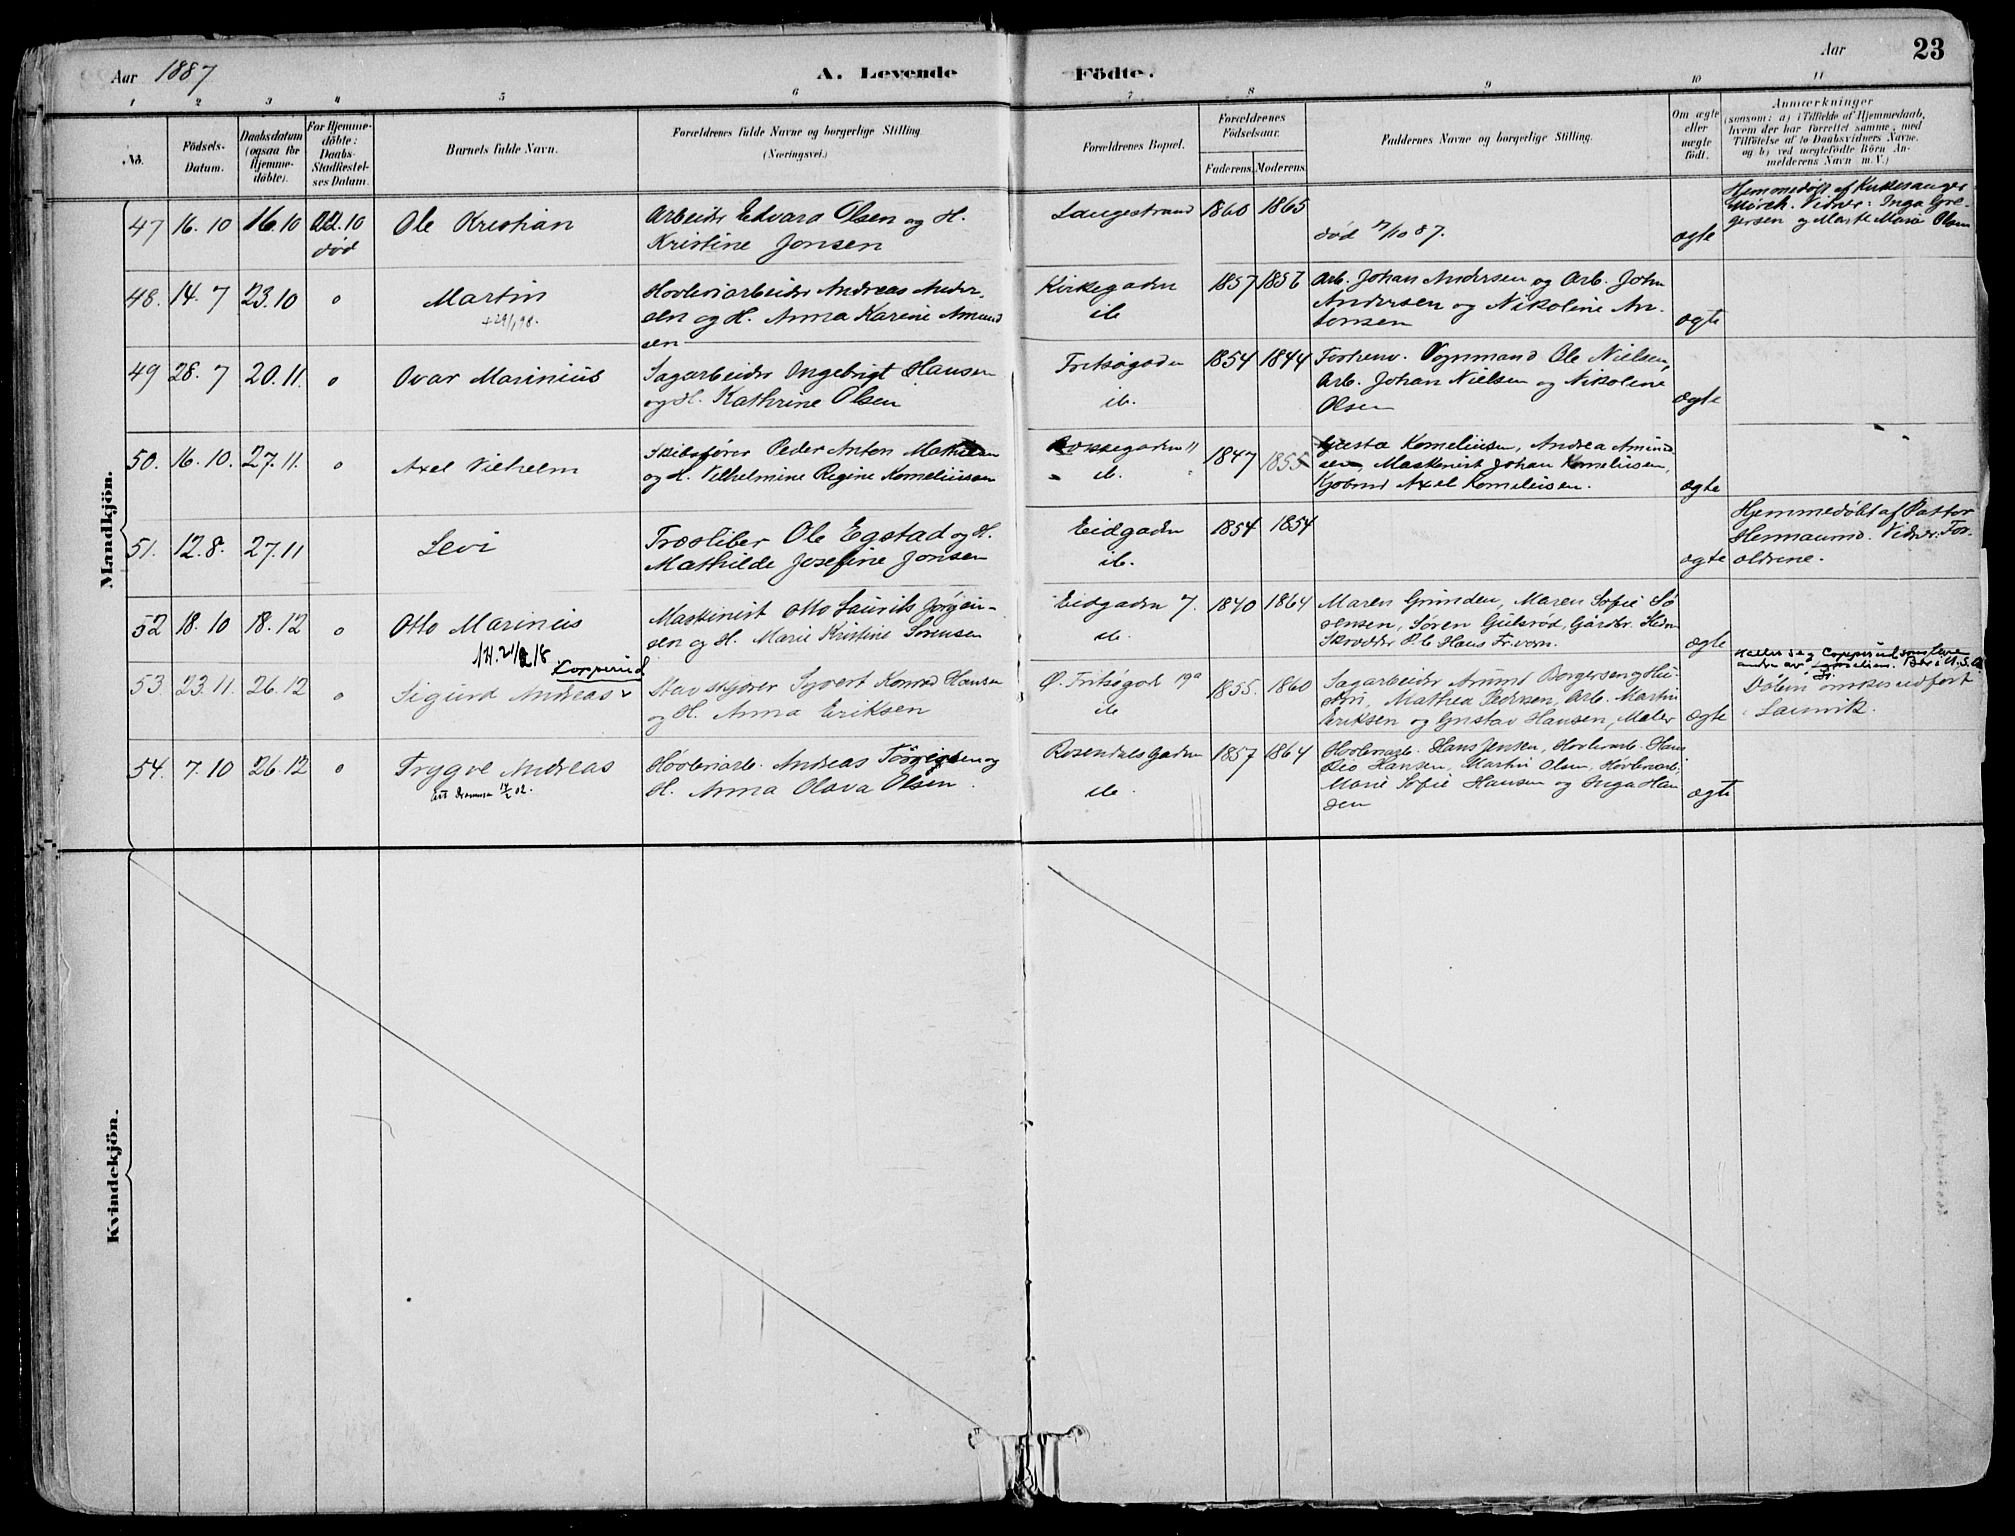 Aar 1887
A. Levende
Födte.
Aar
23
1 2 3 4 5 6 7 8 9 10 11
No.
Födsels-
Datum.
Daabsdatum
(ogsaa for
Hjemme-
döbte).
For Hjemme-
döbte:
Daabs-
Stadfestel-
ses Datum.
Barnets fulde Navn.
Forældrenes fulde Navne og borgerlige Stilling.
(Næringsvei.)
Forældrenes Bopæl.
Forældrenes
Födselsaar.
Faderens. Moderens.
Faddernes Navne og borgerlige Stilling.
Om ægte
eller
uægte
født.
Anmærkninger
(saasom: a) i Tilfælde af Hjemmedaab,
hvem der har forrettet samme, med
Tilföielse af to Daabsvidners Navne.
og b) ved uægtefödte Börn An-
melderens Navn m. V.)
Mandkjön.
47 16. 10 16. 10 22. 10
død
Ole Kristian
Arbeider Edvard Olsen og H.
Kristine Jonsen
Langestrand 1860 1865
død 17/10 87.
ægte
Hjemmedøbt af Kirkesanger
Mørch. Vidner: Inga Gre-
gersen og Marte Marie Olsen
48. 14. 7 23. 10 0
Martin
+ 29/1 98.
Hovleriarbeider Andreas Ander-
sen og H. Anna Karine Amund
sen
Kirkegaden
ib
1857 1856
Arb. Johan Andersen og Arb. John
Andersen og Nikoline An-
tonsen
ægte
49 28. 7 20. 11. 0
Ovar Marinius
Sagarbeider Ingebrigt Hansen
og H. Kathrine Olsen
Fritsøgaden
ib.
1854 1844
Forhenv. Vognmand Ole Nielsen,
Arb. Johan Nielsen og Nikoline
Olsen
ægte
50. 16. 10. 27. 11. 0
Axel Vilhelm
Skibsfører Peder Anton Mathisen
og H. Vilhelmine Regine Korneliusen
11
ib.
1847 1855
Korneliusen, Andrea Amund
sen, Maskinist Johan Korneliusen,
Kjøbmd Axel Korneliusen.
ægte
51. 12. 8. 27. 11
Levi
Træsliber Ole Egstad og H.
Mathilde Josefine Jonsen
Eidgaden
ib.
1854 1854
ægte
Hjemmedøbt af Pastor
Hermanrud. Vidner: For-
ældrene.
52 18. 10 18. 12 0
Otto Marinius
Maskinist Otto Laurits Jørgen-
sen og H. Marie Kristine Sørensen
Eidgaden 7.
ib.
1840 1864
Maren Grinden, Maren Sofie Sø
rensen, Søren Gulsrød, Gårdbr.
Skrædder
ægte
53 23. 11. 26. 12 0
Kopperud
Sigurd Andreas
Stavskjærer Syvert Konrad Hansen
og H. Anna Eriksen
Ø. Fritsøgad 19a
ib
1855. 1860
Sagarbeider Amund Borgersen og Hu-
stru, Mathea Pedersen, Arb. Martin
Eriksen og Gustav Hansen, Maler
ægte
Kaller seg Kopperud som
Bor i U.S.A.
Laurvik.
54. 7. 10 26. 12 0
Trygve Andreas
Høvleriarb. Andreas Torvigsen og
H. Anna Olava Olsen.
Rosendals Gaden
ib.
1857 1864
Høvleriarb. Hans Jensen, Høvleriarb. Hans
Hansen, Martin Olsen, Høvleriarb,
Marie Sofie Hansen og Inga Han
sen
ægte
Kvindekjön.